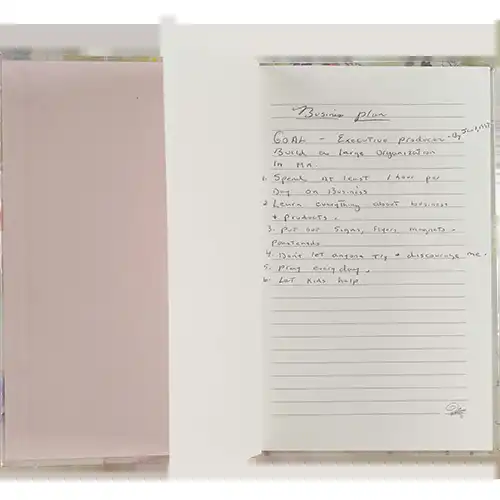 Business plan
GOAL - Executive producer - By
Build a large organization
In MA
1. Spend at least 1 hour per
day on Business
2. Learn everything about business
+ products.
3. Put out signs, flyers, magnets.
4. Don't let anyone try + discourage me.
5. Pray everyday.
6. Let kids help